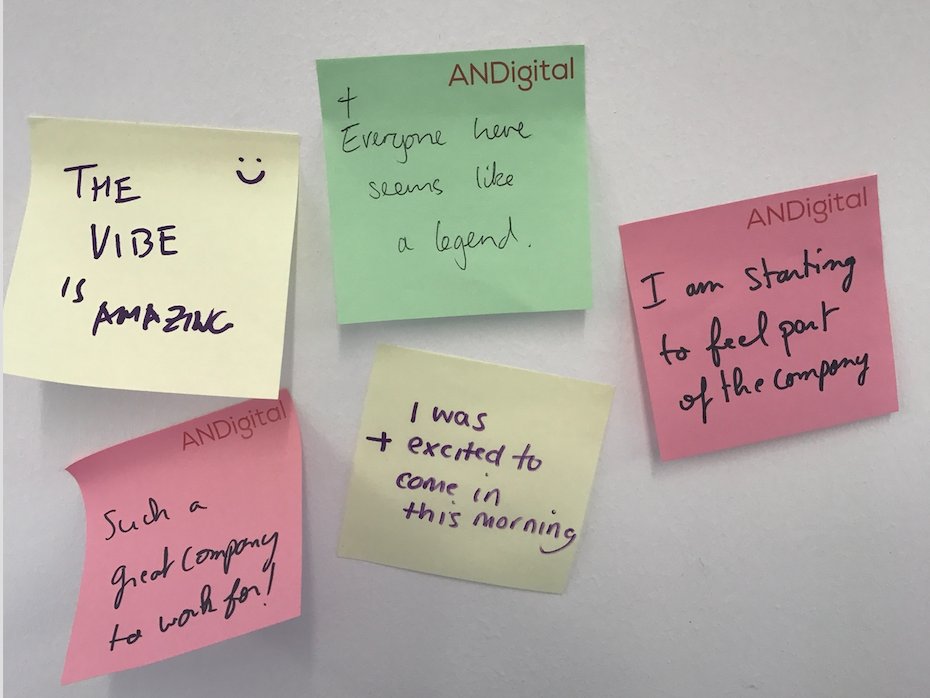 THE
VIBE
IS
AMAZING
ANDigital
+
Everyone here
seems like
a legend.
ANDigital
I am starting
to feel part
of the company
ANDigital
Such a
great company
to work for!
I was
+ excited to
come in
this morning